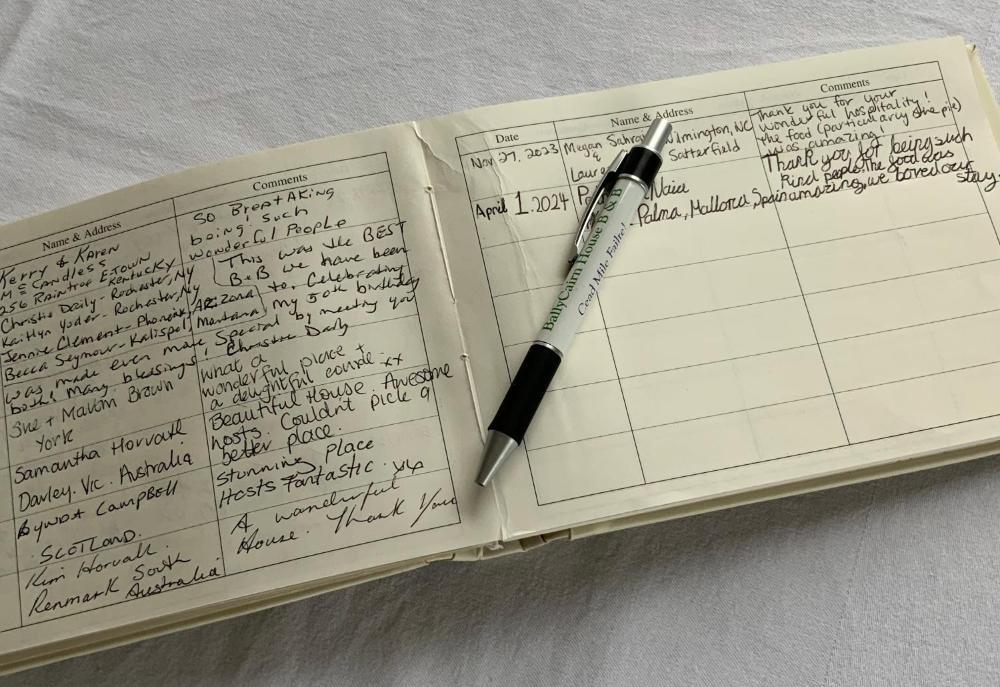 Name & Address
Comments
Kerry & Karen
McCandless
256 Raintree ETOWN
Kentucky
SO BrEptAKing
being, such
wonderful People
Christie Daily - Rochester, NY
Kaitlyn Yoder - Rochester, NY
Jennie Clement - Phoenix, Arizona
Becca Seymour - Kalispel, Montana
This was the BEST
B+B we have been
to. Celebrating
my 50th birthday
was made even more special by meeting you
both! Many blessings, Christie Daily
She + Mavin Brown
York
what a
wonderful place +
a delightful couple xx
Samantha Horvath
Darley. Vic. Australia
Beautiful House Awesome
hosts. Couldnt pick a
better place.
Campbell
SCOTLAND.
stunning place
Hosts Fantastic
Kim Horvath.
Renmark South
Australia
A wonderful
House. Thank You
Date
Name & Address
Comments
Nov 27, 2023
Megan
&
Satterfield
Thank you for your
wonderful hospitality!
the food (particularly the pie)
was amazing!
April 1.2024
Palma, Mallorca, Spain
Thank you for being such
kind people, the food was
amazing, we loved our
stay.
BallyCairn House B & B
Cead Mile Failte!